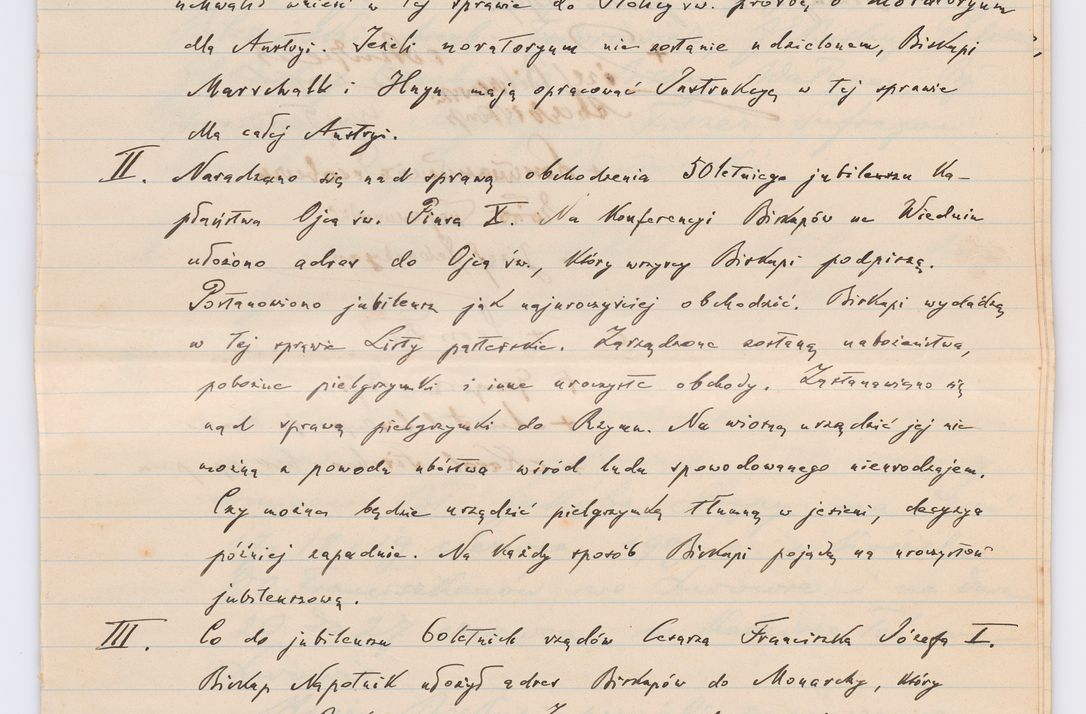 uchwalił wnieść w tej sprawie do Stolicy św. prośbę o moratoryum
dla Austryi. Jeżeli moratoryum nie zostanie udzielonem, Biskupi
Marschall i Huyn mają opracować Instrukcyę w tej sprawie
dla całej Austryi.
II. Naradzano się nad sprawą obchodzenia 50letniego jubileuszu ka-
płaństwa Ojca św. Piusa X. Na Konferencyi Biskupów we Wiedniu
ułożono adres do Ojca św., który wszyscy Biskupi podpiszą.
Postanowiono jubileusz jak najuroczyściej obchodzić. Biskupi wydadzą
w tej sprawie Listy pasterskie. Zarządzone zostaną nabożeństwa,
pobożne pielgrzymki i inne uroczyste obchody. Zastanawiano się
nad sprawą pielgrzymki do Rzymu. Na wiosnę urządzić jej nie
można z powodu ubóstwa wśród ludu spowodowanego nieurodzajem.
Czy można będzie urządzić pielgrzymkę tłumną w jesieni, decyzya
później zapadnie. Na każdy sposób Biskupi pojadą na uroczystość
jubileuszową.
III. Co do jubileuszu 60letnich rządów Cesarza Franciszka Józefa I.
Biskup Napotnik ułożył adres Biskupów do Monarchy, który